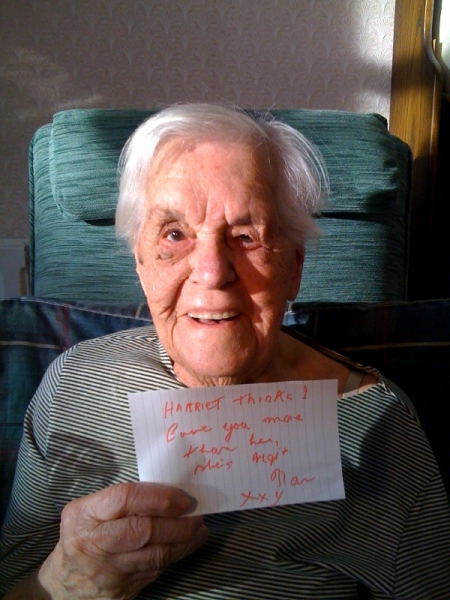 HARRIET thinks I
Love you more
than her,
she's right
Nan
xxx